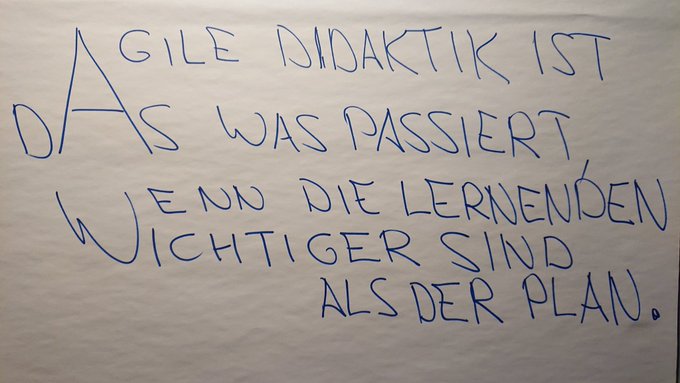 AGILE DIDAKTIK IST
DAS WAS PASSIERT,
WENN DIE LERNENDEN
WICHTIGER SIND
ALS DER PLAN.